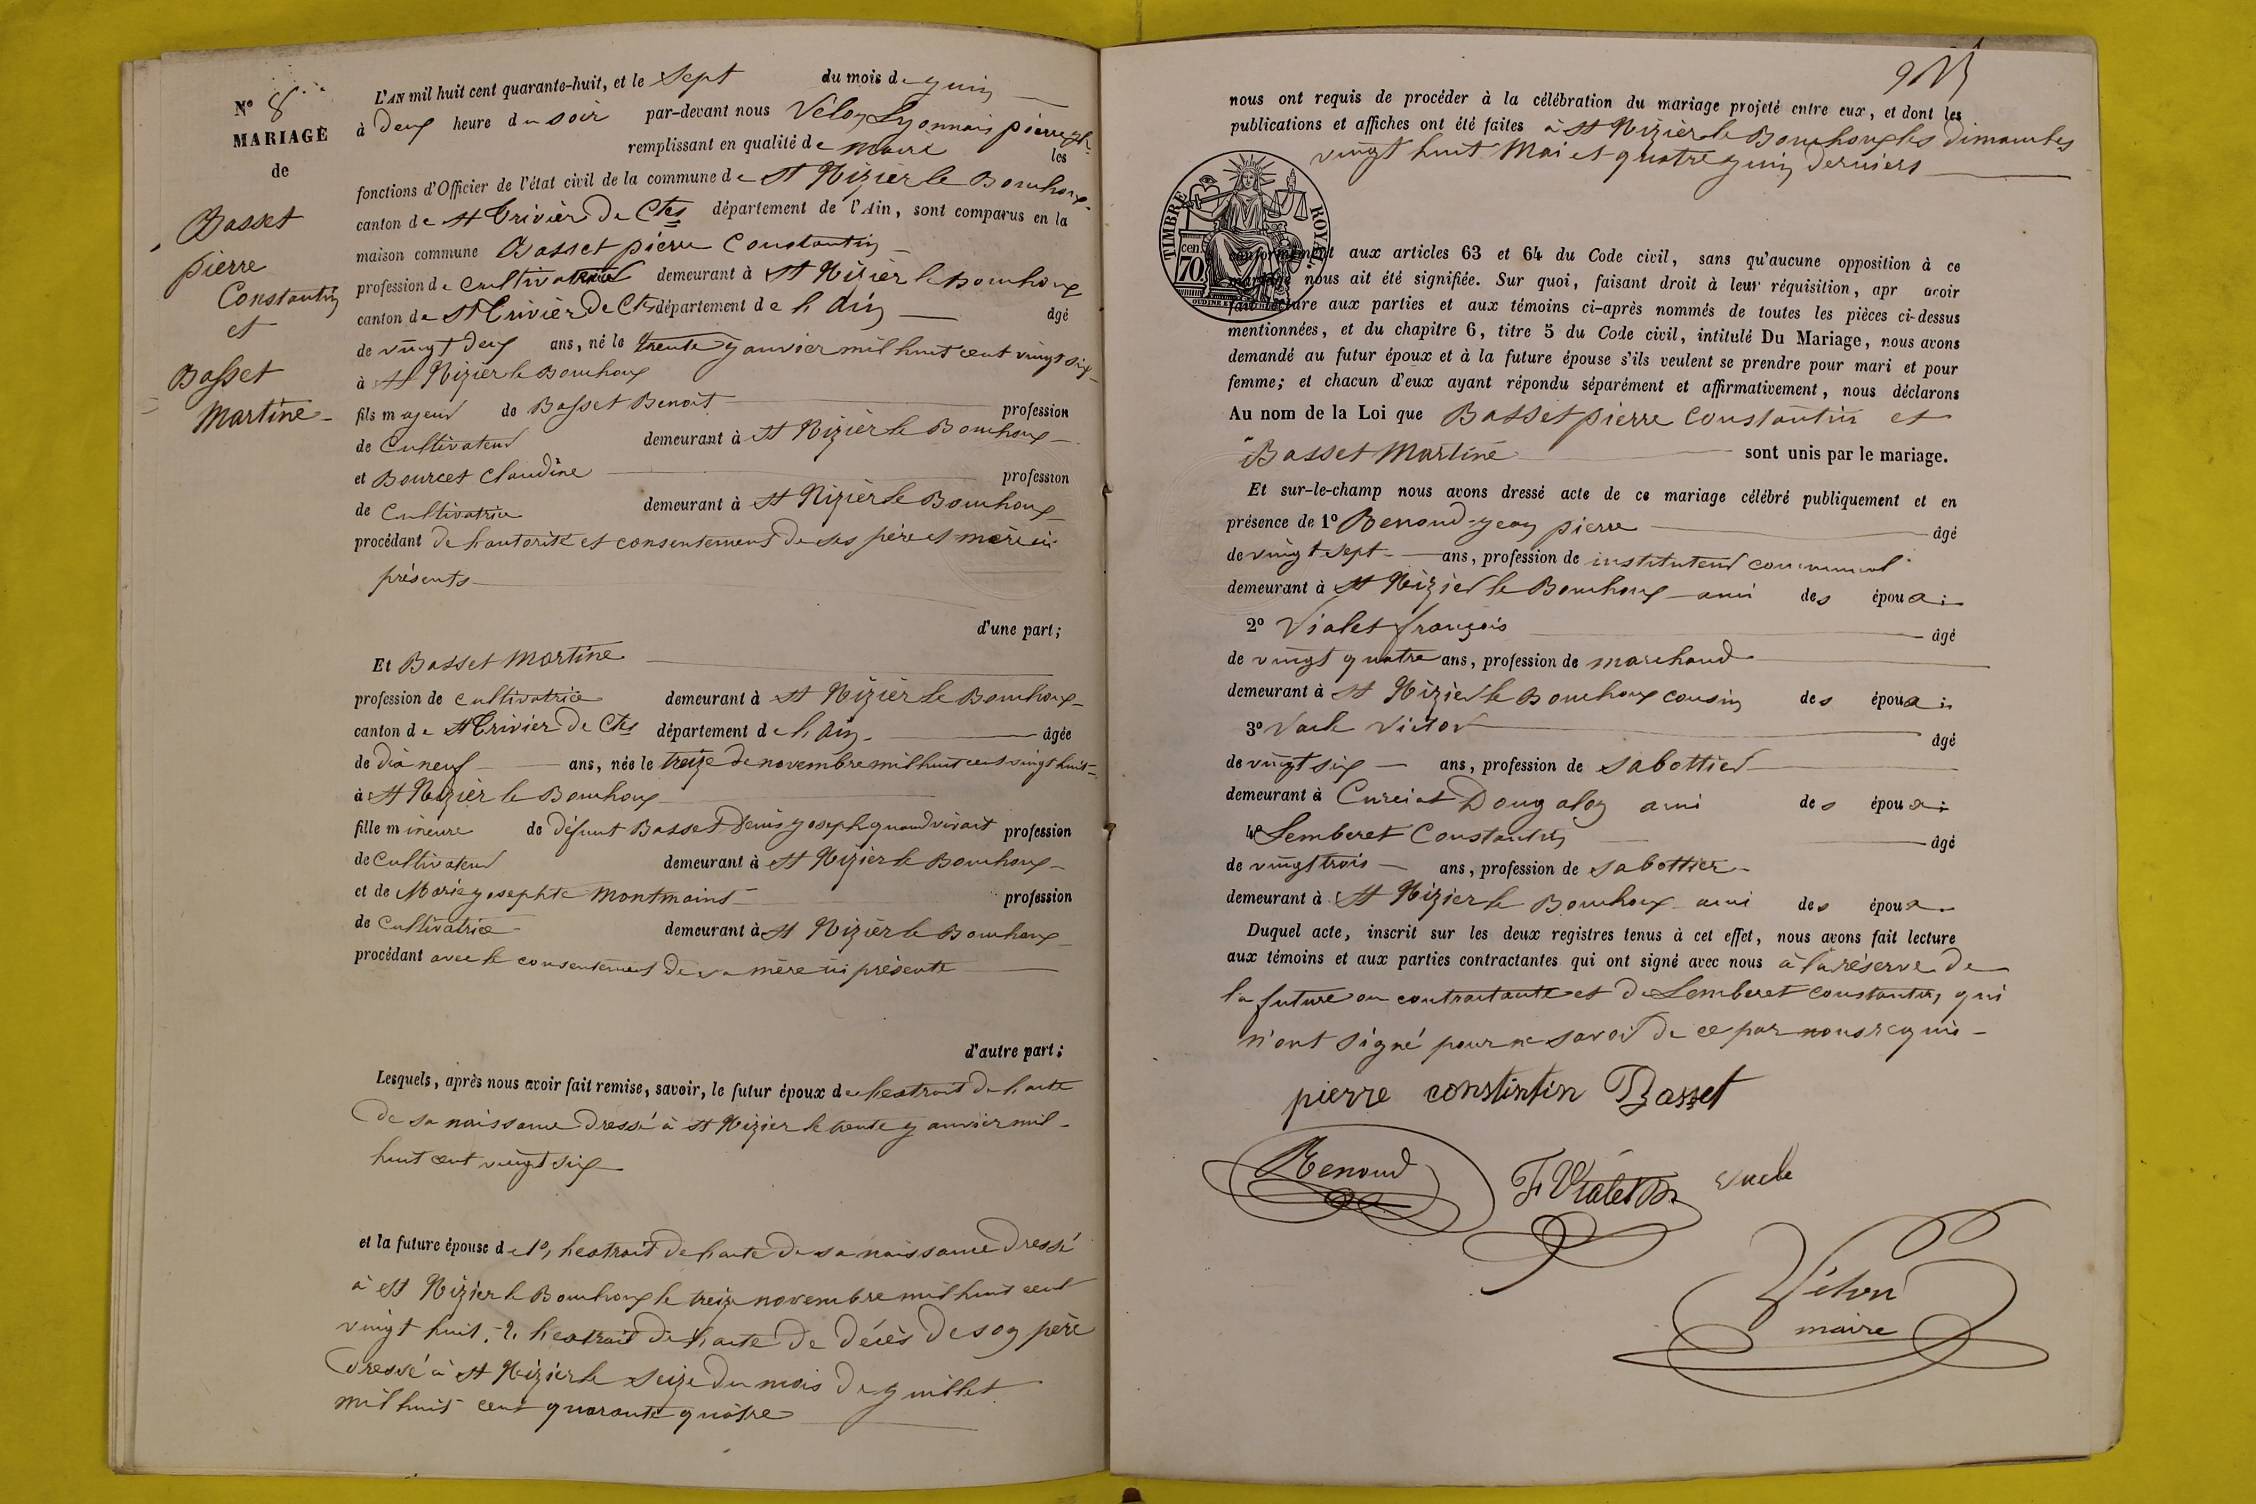 N° 8
MARIAGE
de
Basset
pierre
Constantin
et
Basset
Martine
L'AN mil huit cent quarante-huit, et le sept du mois de juin
à deux heure du soir par-devant nous Vélon Lyonnais pierre
remplissant en qualité de maire les
fonctions d'Officier de l'état civil de la commune de St Nizier le Bouhoux
canton de St Trivier de Ctes département de l'Ain, sont comparus en la
maison commune Basset pierre Constantin
profession de cultivateur demeurant à St Nizier le Bouhoux
canton de St Trivier de Ctes département de l'Ain âgé
de vingt deux ans, né le trente janvier mil huit cent vingt six
à St Nizier le Bouhoux
fils majeur de Basset Benoit profession
de Cultivateur demeurant à St Nizier le Bouhoux
et Bourcet Claudine profession
de Cultivatrice demeurant à St Nizier le Bouhoux
procédant de l'autorité et consentement de ses père et mère ici
présents
d'une part;
Et Basset Martine
profession de cultivatrice demeurant à St Nizier le Bouhoux
canton de St Trivier de Ctes département de l'Ain âgée
de dix neuf ans, née le treize de novembre mil huit cent vingt huit
à St Nizier le Bouhoux
fille mineure de défunt Basset Denis joseph quand vivait profession
de Cultivateur demeurant à St Nizier le Bouhoux
et de Marie josephte Montmaint profession
de Cultivatrice demeurant à St Nizier le Bouhoux
procédant avec le consentement de sa mère ici présente
d'autre part;
Lesquels, après nous avoir fait remise, savoir, le futur époux de l'extrait de l'acte
de sa naissance dressé à St Nizier le trente janvier mil
huit cent vingt six
et la future épouse de 1°, l'extrait de l'acte de sa naissance dressé
à St Nizier le Bouhoux le treize novembre mil huit cent
vingt huit, 2. l'extrait de l'acte de décès de son père
dressé à St Nizier le seize du mois de juillet
mil huit cent quarante quatre
nous ont requis de procéder à la célébration du mariage projeté entre eux, et dont les
publications et affiches ont été faites à St Nizier le Bouhoux les dimanches
vingt huit Mai et quatre juin derniers
TIMBRE ROYAL
70 cen.
conformément aux articles 63 et 64 du Code civil, sans qu'aucune opposition à ce
mariage nous ait été signifiée. Sur quoi, faisant droit à leur réquisition, apr avoir
fait lecture aux parties et aux témoins ci-après nommés de toutes les pièces ci-dessus
mentionnées, et du chapitre 6, titre 5 du Code civil, intitulé Du Mariage, nous avons
demandé au futur époux et à la future épouse s'ils veulent se prendre pour mari et pour
femme; et chacun d'eux ayant répondu séparément et affirmativement, nous déclarons
Au nom de la Loi que Basset pierre Constantin et
Basset Martine sont unis par le mariage.
Et sur-le-champ nous avons dressé acte de ce mariage célébré publiquement et en
présence de 1° Renoud jean pierre âgé
de vingt sept ans, profession de instituteur communal
demeurant à St Nizier le Bouhoux ami des époux;
2° Vialet françois âgé
de vingt quatre ans, profession de marchand
demeurant à St Nizier le Bouhoux cousin des époux;
3° Vacle Victor âgé
de vingt six ans, profession de sabottier
demeurant à Curciat Dongalon ami des époux;
4° Lemberet Constantin âgé
de vingt trois ans, profession de sabottier
demeurant à St Nizier le Bouhoux ami des époux.
Duquel acte, inscrit sur les deux registres tenus à cet effet, nous avons fait lecture
aux témoins et aux parties contractantes qui ont signé avec nous à la réserve de
la future contractante et de Lemberet Constantin, qui
n'ont signé pour ne savoir de ce par nous requis
pierre constintin Basset
Renoud
F Vialet
vacle
Vélon
maire